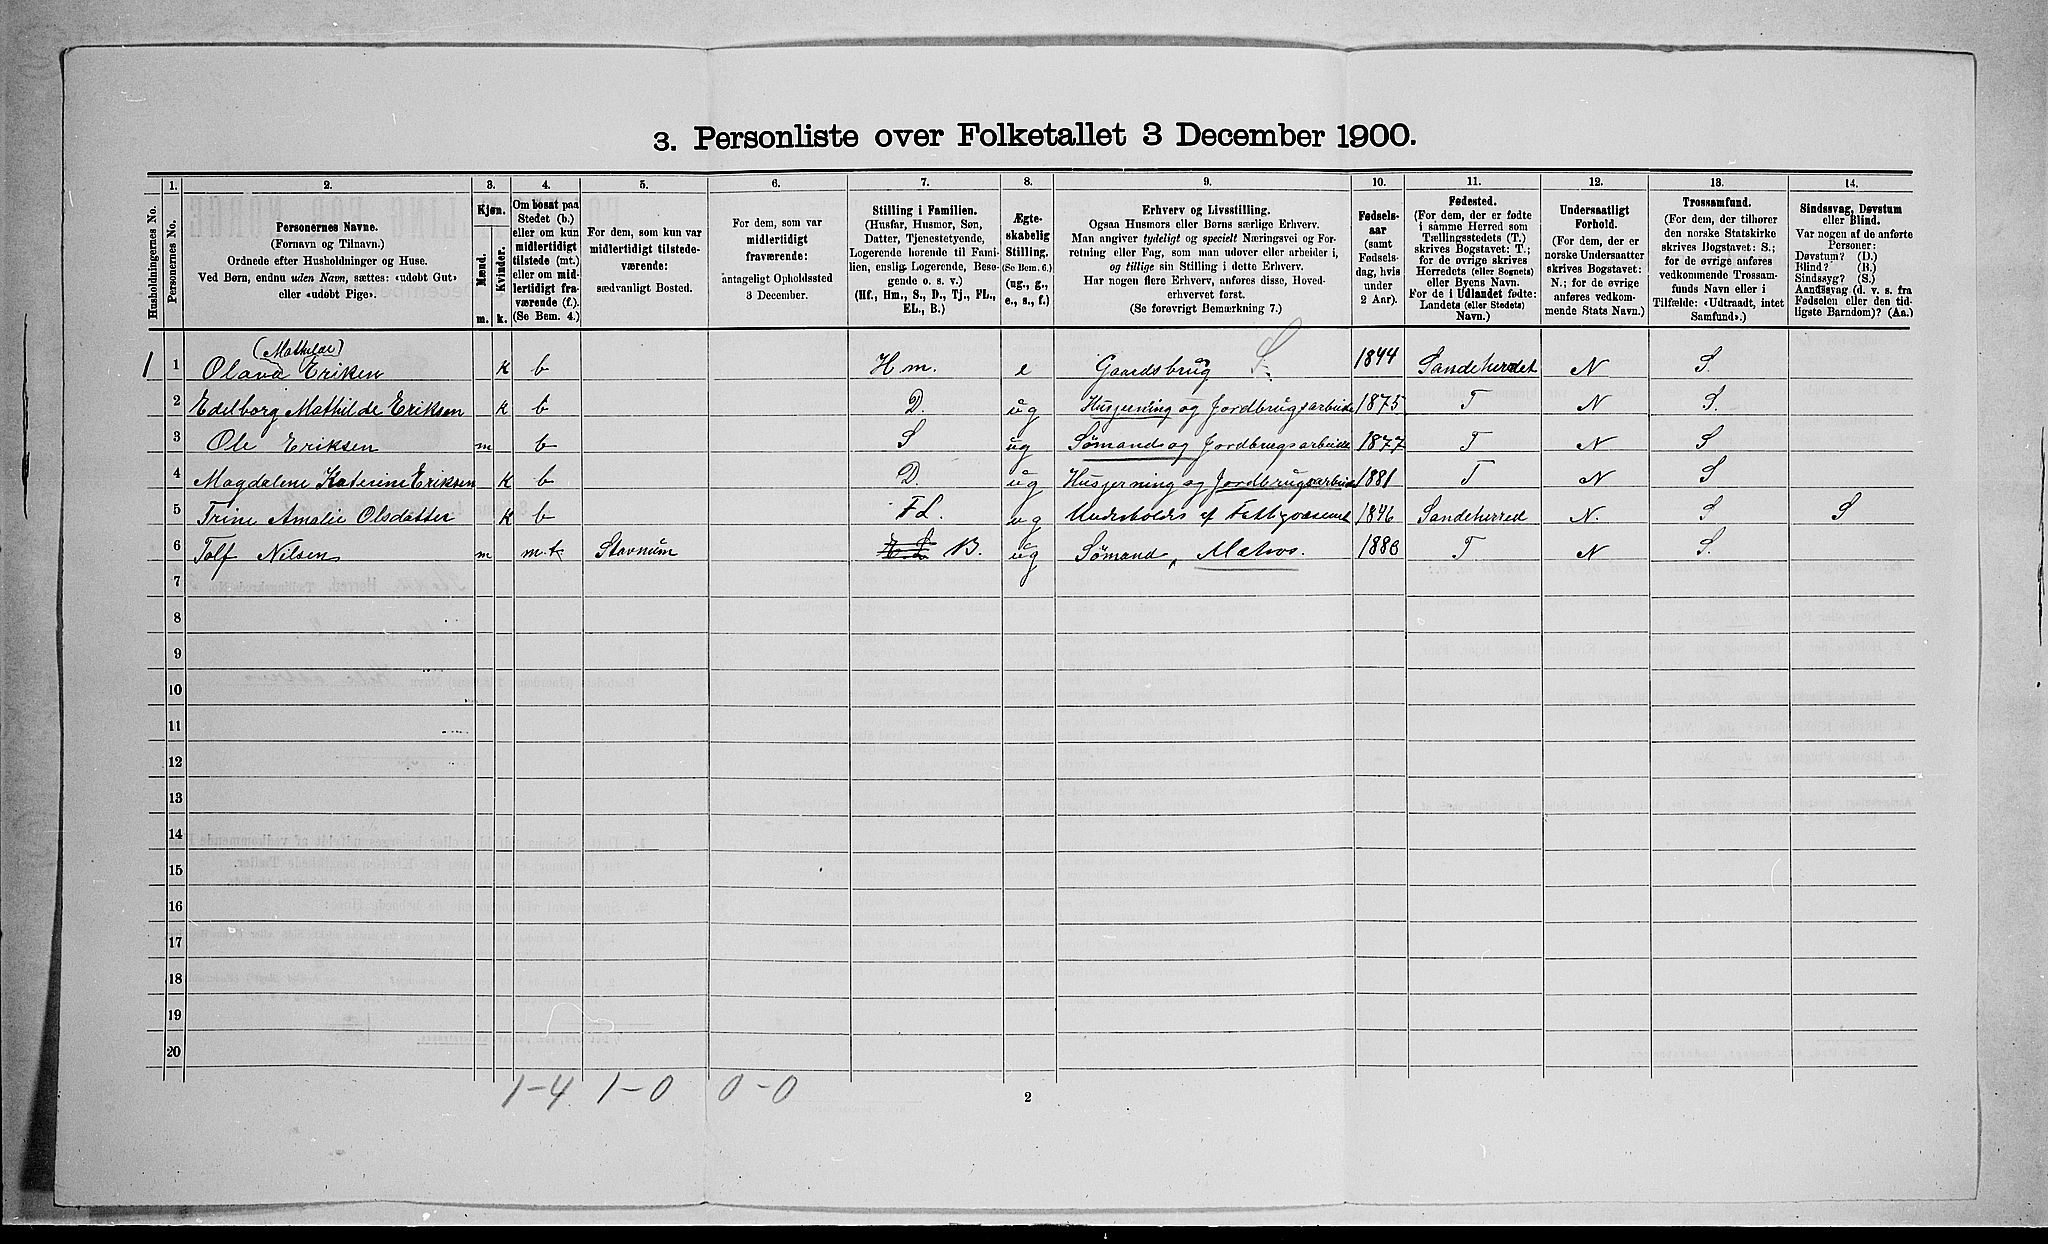 3. Personliste over Folketallet 3 December 1900.
1. 2. 3. 4. 5. 6. 7. 8. 9. 10. 11. 12. 13. 14.
Husholdningernes No.
Personernes No.
Personernes Navne.
(Fornavn og Tilnavn.)
Ordnede efter Husholdninger og Huse.
Ved Børn, endnu uden Navn, sættes: «udøbt Gut»
eller «udøbt Pige».
Kjøn.
Mænd.
Kvinder.
m. k.
Om bosat paa
Stedet (b.)
eller om kun
midlertidigt
tilstede (mt.)
eller om mid-
lertidigt fra-
værende (f.)
(Se Bem. 4.)
For dem, som kun var
midlertidigt tilstede-
værende:
sædvanligt Bosted.
For dem, som var
midlertidigt
fraværende:
antageligt Opholdssted
3 December.
Stilling i Familien.
(Husfar, Husmor, Søn,
Datter, Tjenestetyende,
Logerende hørende til Fami-
lien, enslig Logerende, Besø-
gende o. s. v.)
(Hf., Hm., S., D., Tj., FL.,
EL., B.)
Ægte-
skabelig
Stilling.
(Se Bem. 6.)
(ug., g.,
e., s., f.)
Erhverv og Livsstilling.
Ogsaa Husmors eller Børns særlige Erhverv.
Man angiver tydeligt og specielt Næringsvei og For-
retning eller Fag, som man udøver eller arbeider i,
og tillige sin Stilling i dette Erhverv.
Har nogen flere Erhverv, anføres disse, Hoved-
erhvervet først.
(Se forøvrigt Bemærkning 7.)
Fødsels-
aar
(samt
Fødsels-
dag, hvis
under
2 Aar).
Fødested.
(For dem, der er fødte
i samme Herred som
Tællingsstedets (T.)
skrives Bogstavet: T.;
for de øvrige skrives
Herredets (eller Sognets)
eller Byens Navn.
For de i Udlandet fødte:
Landets (eller Stedets)
Navn.)
Undersaatligt
Forhold.
(For dem, der er
norske Undersaatter
skrives Bogstavet:
N.; for de øvrige
anføres vedkom-
mende Stats Navn.)
Trossamfund.
(For dem, der tilhører
den norske Statskirke
skrives Bogstavet: S.;
for de øvrige anføres
vedkommende Trossam-
funds Navn eller i
Tilfælde: «Udtraadt, intet
Samfund».)
Sindssvag, Døvstum
eller Blind.
Var nogen af de anførte
Personer:
Døvstum? (D.)
Blind? (B.)
Sindssyg? (S.)
Aandssvag (d. v. s. fra
Fødselen eller den tid-
ligste Barndom)? (Aa.)
(Mathilde)
1 1 Olava Eriken k b Hm. e Gaardsbrug S. 1844 Sandeherredet N S.
2 Edelborg Mathilde Eriksen k b D. ug Husjerning og Jordbrugsarbeide 1875 T N S.
3 Ole Eriksen m b S ug Sømands og Jordbrugsarbeide 1877 T N S
4 Magdalene Katerine Eriksen k b D. ug Husjerning og Jordbrugsarbeide 1881 T N S
5 Trine Amalie Olsdatter k b FL. ug Underholdes af Fattigvæsenet 1846 Sandeherred N. S S
6 Tolf Nilsen m m.t Stavnum B. ug Sømand, Matros. T N S.
7
8
9
10
11
12
13
14
15
16
17
18
19
20
1-4 1-0 0-0
2